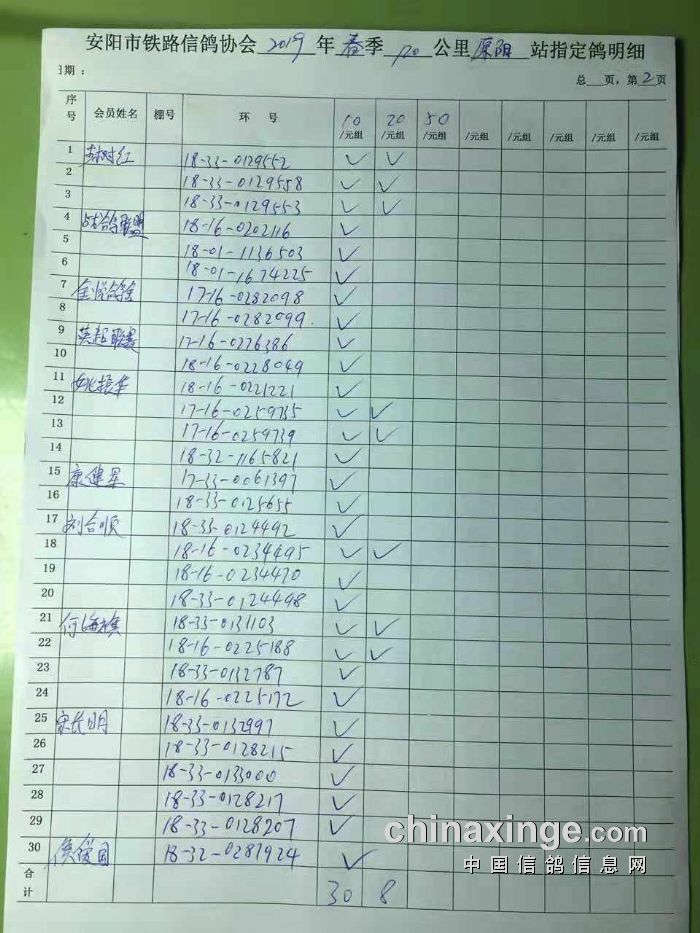 安阳市铁路信鸽协会 2019 年 春 季 120 公里 原阳 站指定鸽明细
日期： 总 页，第 2 页
序号 会员姓名 棚号 环 号 10/元组 20/元组 50/元组 /元组 /元组 /元组 /元组
1 18-33-0129552 ✓ ✓
2 18-33-0129558 ✓ ✓
3 18-33-0129553 ✓ ✓
4 战鸽联盟 18-16-0202116 ✓
5 18-01-1136503 ✓
6 18-01-1674225 ✓
7 17-16-0282098 ✓
8 17-16-0282099 ✓
9 英超联赛 17-16-0226386 ✓
10 18-16-0228049 ✓
11 姚振华 18-16-0221221 ✓
12 17-16-0259735 ✓ ✓
13 17-16-0259739 ✓ ✓
14 18-32-1165821 ✓
15 康建军 17-33-0061397 ✓
16 18-33-0125655 ✓
17 刘合顺 18-33-0124492 ✓
18 18-16-0234495 ✓ ✓
19 18-16-0234470 ✓
20 18-33-0124498 ✓
21 何海旗 18-33-0131103 ✓ ✓
22 18-16-0225188 ✓ ✓
23 18-33-0132787 ✓
24 18-16-0225172 ✓
25 宋长明 18-33-0132997 ✓
26 18-33-0128215 ✓
27 18-33-0133000 ✓
28 18-33-0128217 ✓
29 18-33-0128207 ✓
30 18-32-0281924 ✓
合计 30 8
chinaxinge.com
中国信鸽信息网